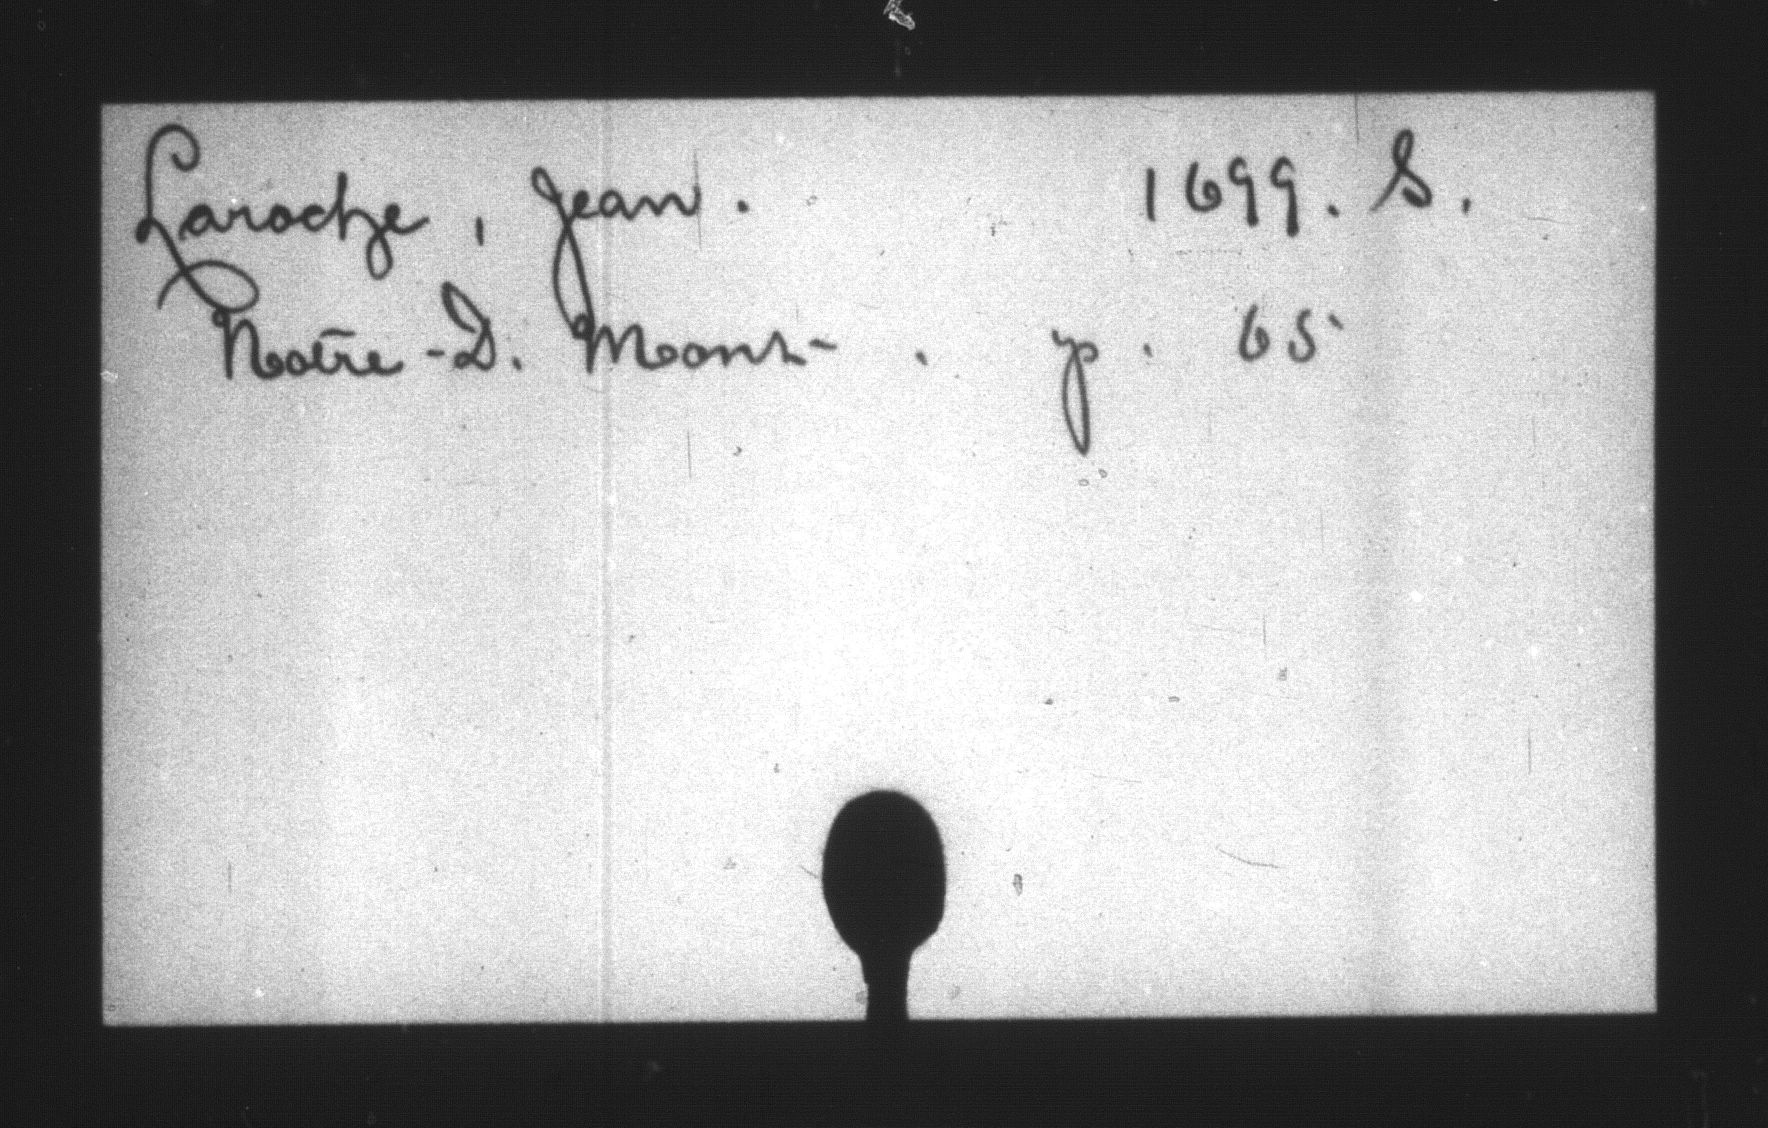 Laroche, Jean. 1699. S.
Notre-D. Mont-. p. 65